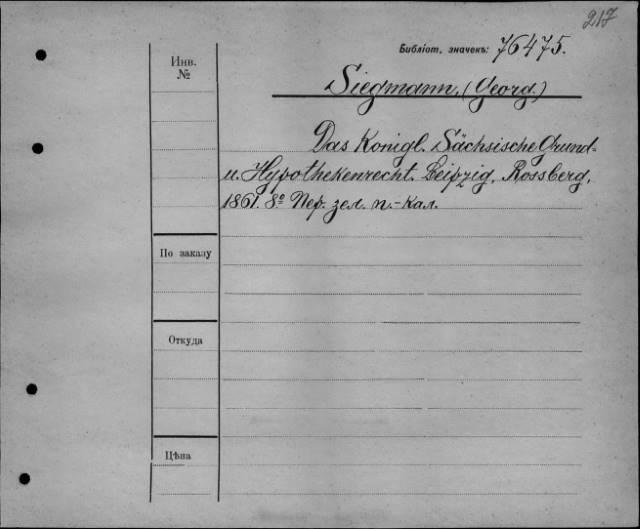 217
Библіот. значекъ: 76475.
Инв.
№
Siegmann, (Georg.)
Das Königl. Sächsische Grund-
u. Hypothekenrecht. Leipzig, Rossberg,
1861. 8º Пер. зел. п.-кал.
По заказу
Откуда
Цѣна